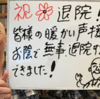 祝 退院!
皆様の暖かい声援の
お陰で無事退院
できました!